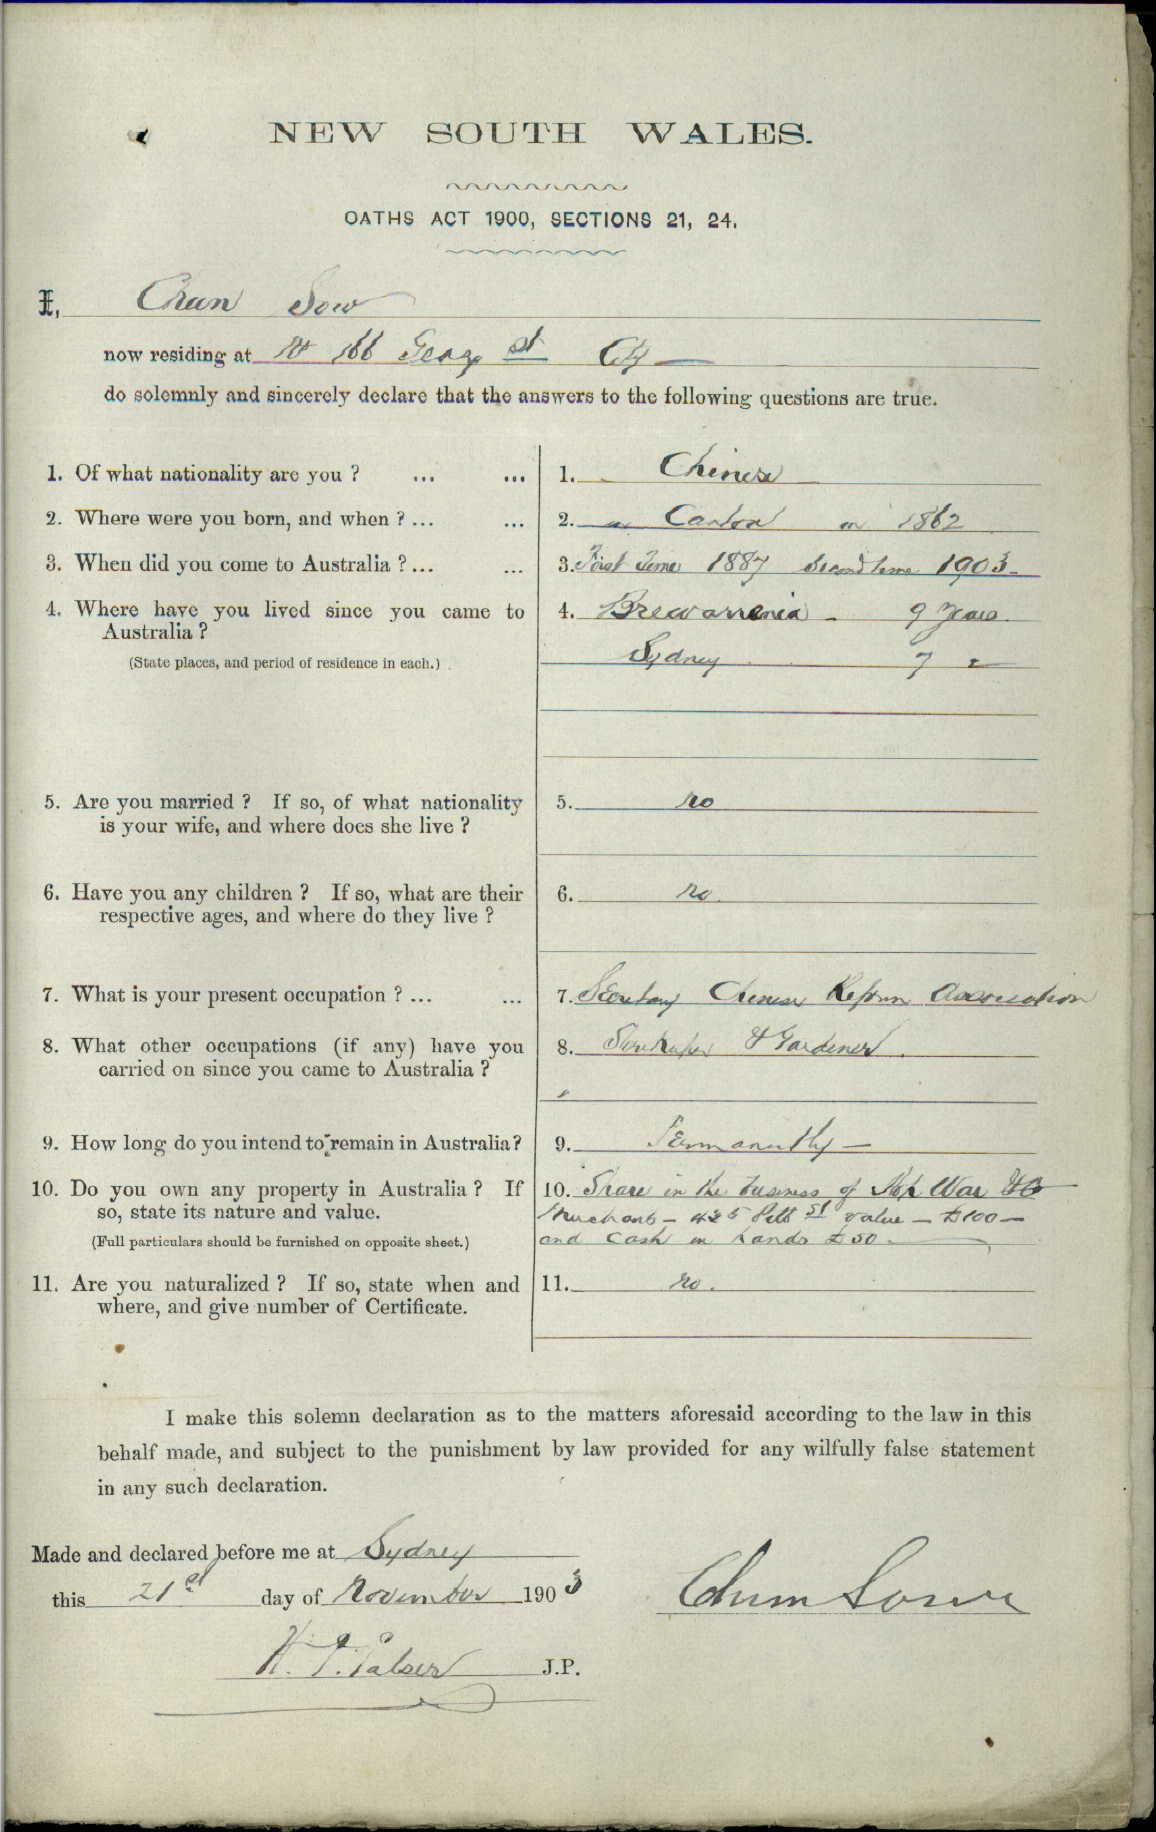 NEW SOUTH WALES.
OATHS ACT 1900, SECTIONS 21, 24.
I, Chan Sow
now residing at No 166 George st City
do solemnly and sincerely declare that the answers to the following questions are true.
1. Of what nationality are you ? ... ... 1. Chinese
2. Where were you born, and when ? ... ... 2. Canton in 1862
3. When did you come to Australia ? ... ... 3. First Time 1887 Second time 1903
4. Where have you lived since you came to 4. Brewarrenia - 9 years
Australia ?
(State places, and period of residence in each.) Sydney 7 "
5. Are you married ? If so, of what nationality 5. no
is your wife, and where does she live ?
6. Have you any children ? If so, what are their 6. no.
respective ages, and where do they live ?
7. What is your present occupation ? ... ... 7. Secretary Chinese Reform Association
8. What other occupations (if any) have you 8. Storekeeper & Gardener.
carried on since you came to Australia ?
9. How long do you intend to remain in Australia? 9. Permanently
10. Do you own any property in Australia ? If 10. Share in the business of War & Co
so, state its nature and value. Merchants - 425 Pitt St value - £100 -
(Full particulars should be furnished on opposite sheet.) and Cash in hands £50
11. Are you naturalized ? If so, state when and 11. no.
where, and give number of Certificate.
I make this solemn declaration as to the matters aforesaid according to the law in this
behalf made, and subject to the punishment by law provided for any wilfully false statement
in any such declaration.
Made and declared before me at Sydney
this 21st day of November 1903
Chum Sowe
H. J. Palser J.P.